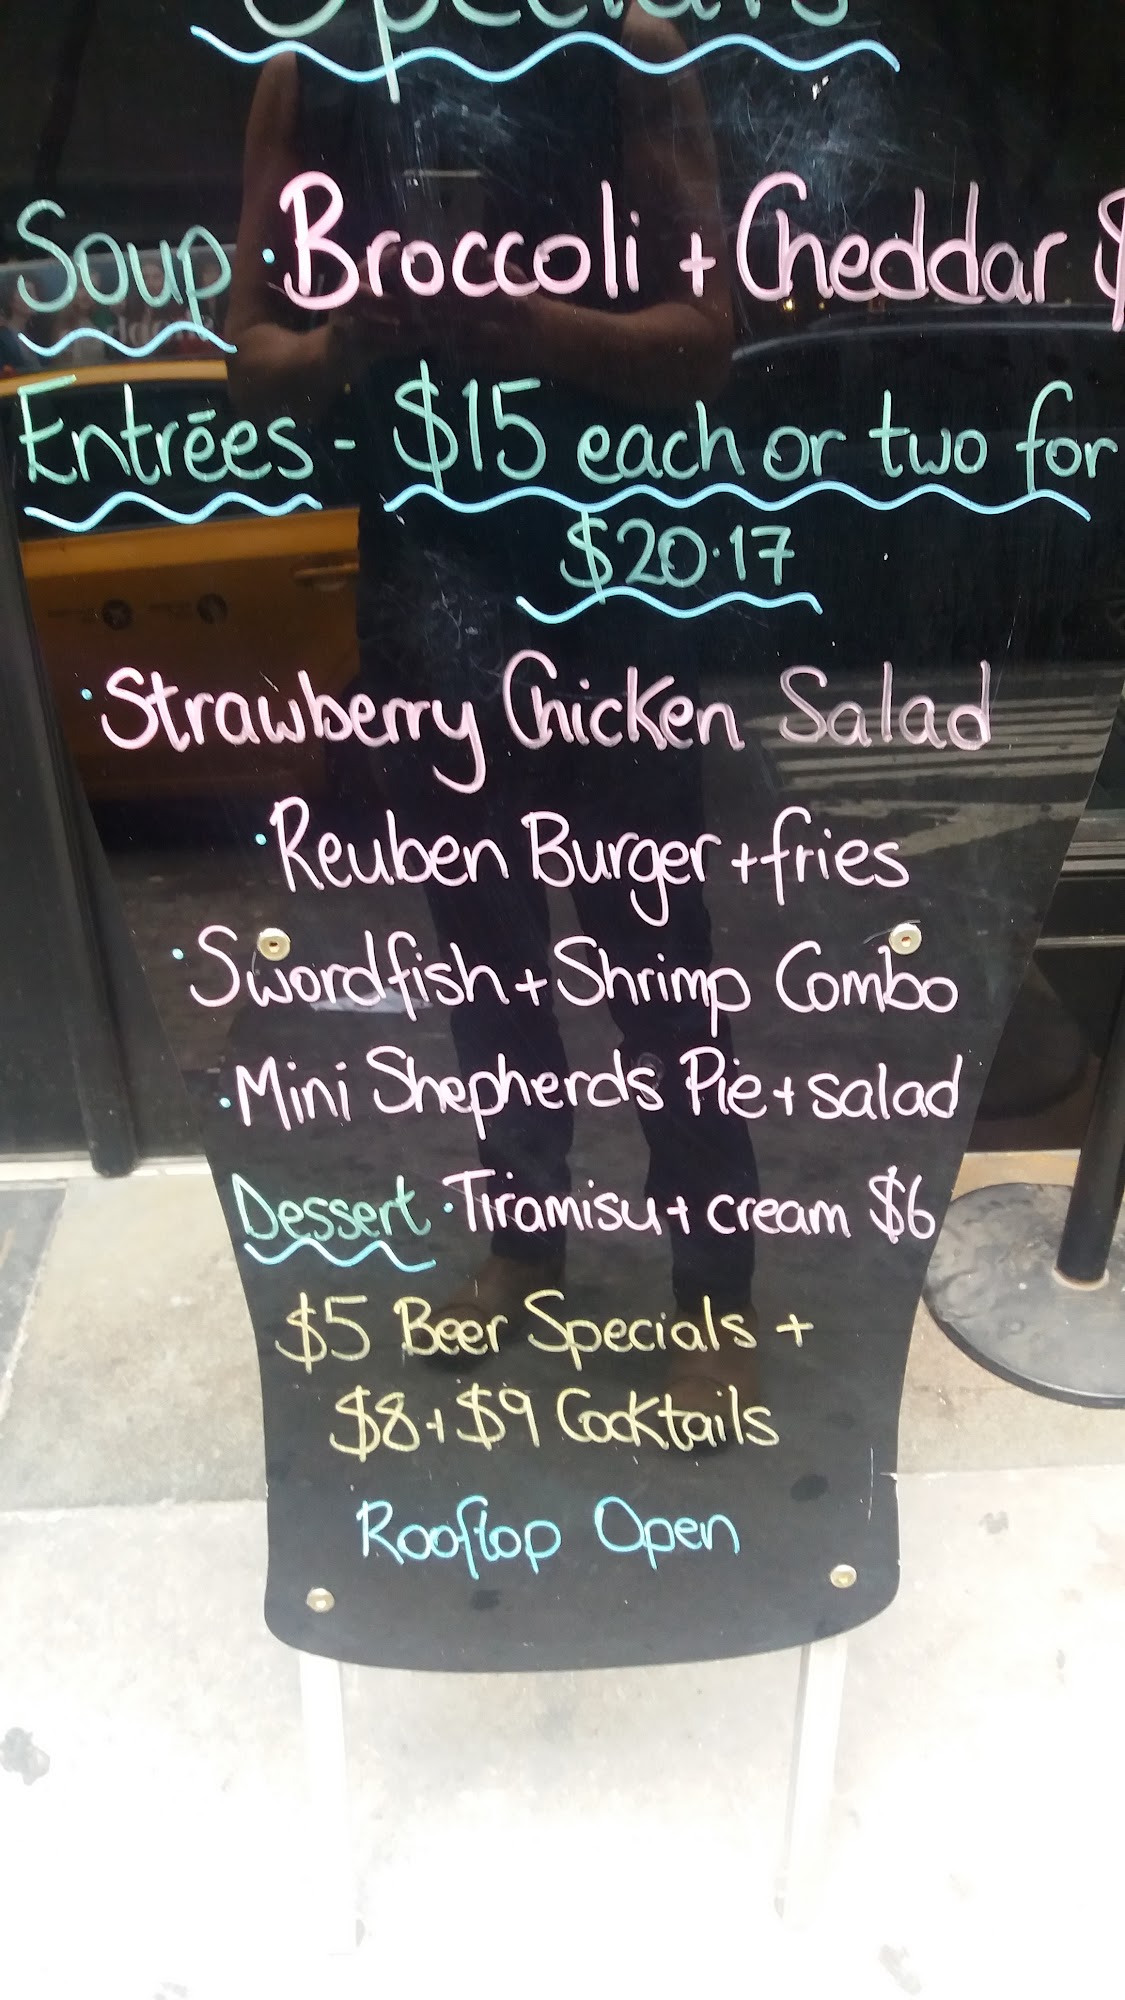 Specials
Soup · Broccoli + Cheddar $
Entrées - $15 each or two for
$20.17
· Strawberry Chicken Salad
· Reuben Burger + fries
· Swordfish + Shrimp Combo
· Mini Shepherds Pie + salad
Dessert · Tiramisu + cream $6
$5 Beer Specials +
$8 + $9 Cocktails
Rooftop Open